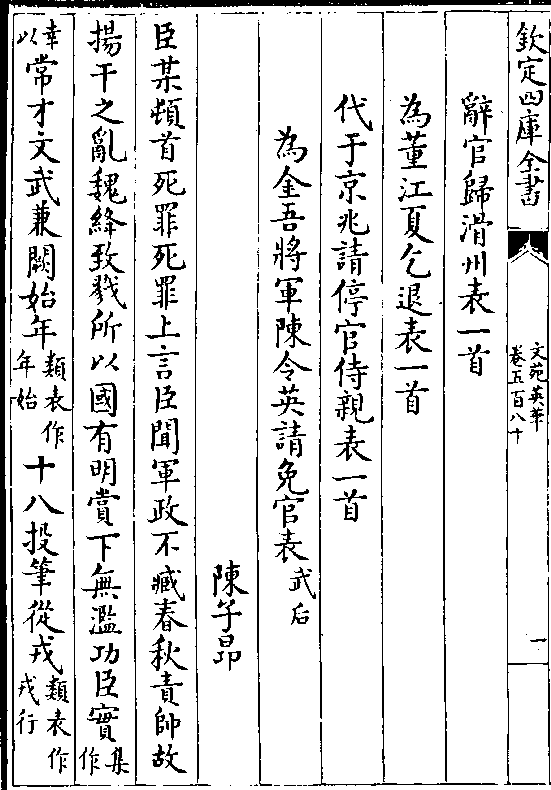 欽定四庫全書
文苑英華
卷五百八十
一
辭官歸滑州表一首
為董江夏乞退表一首
代于京兆請停官侍親表一首
為金吾將軍陳令英請免官表武后
陳子昂
臣某頓首死罪死罪上言臣聞軍政不臧春秋責帥故
揚干之亂魏絳致戮所以國有明賞下無濫功臣實集作
幸以常才文武兼闕始年類表作年始十八投筆從戎類表作戎行